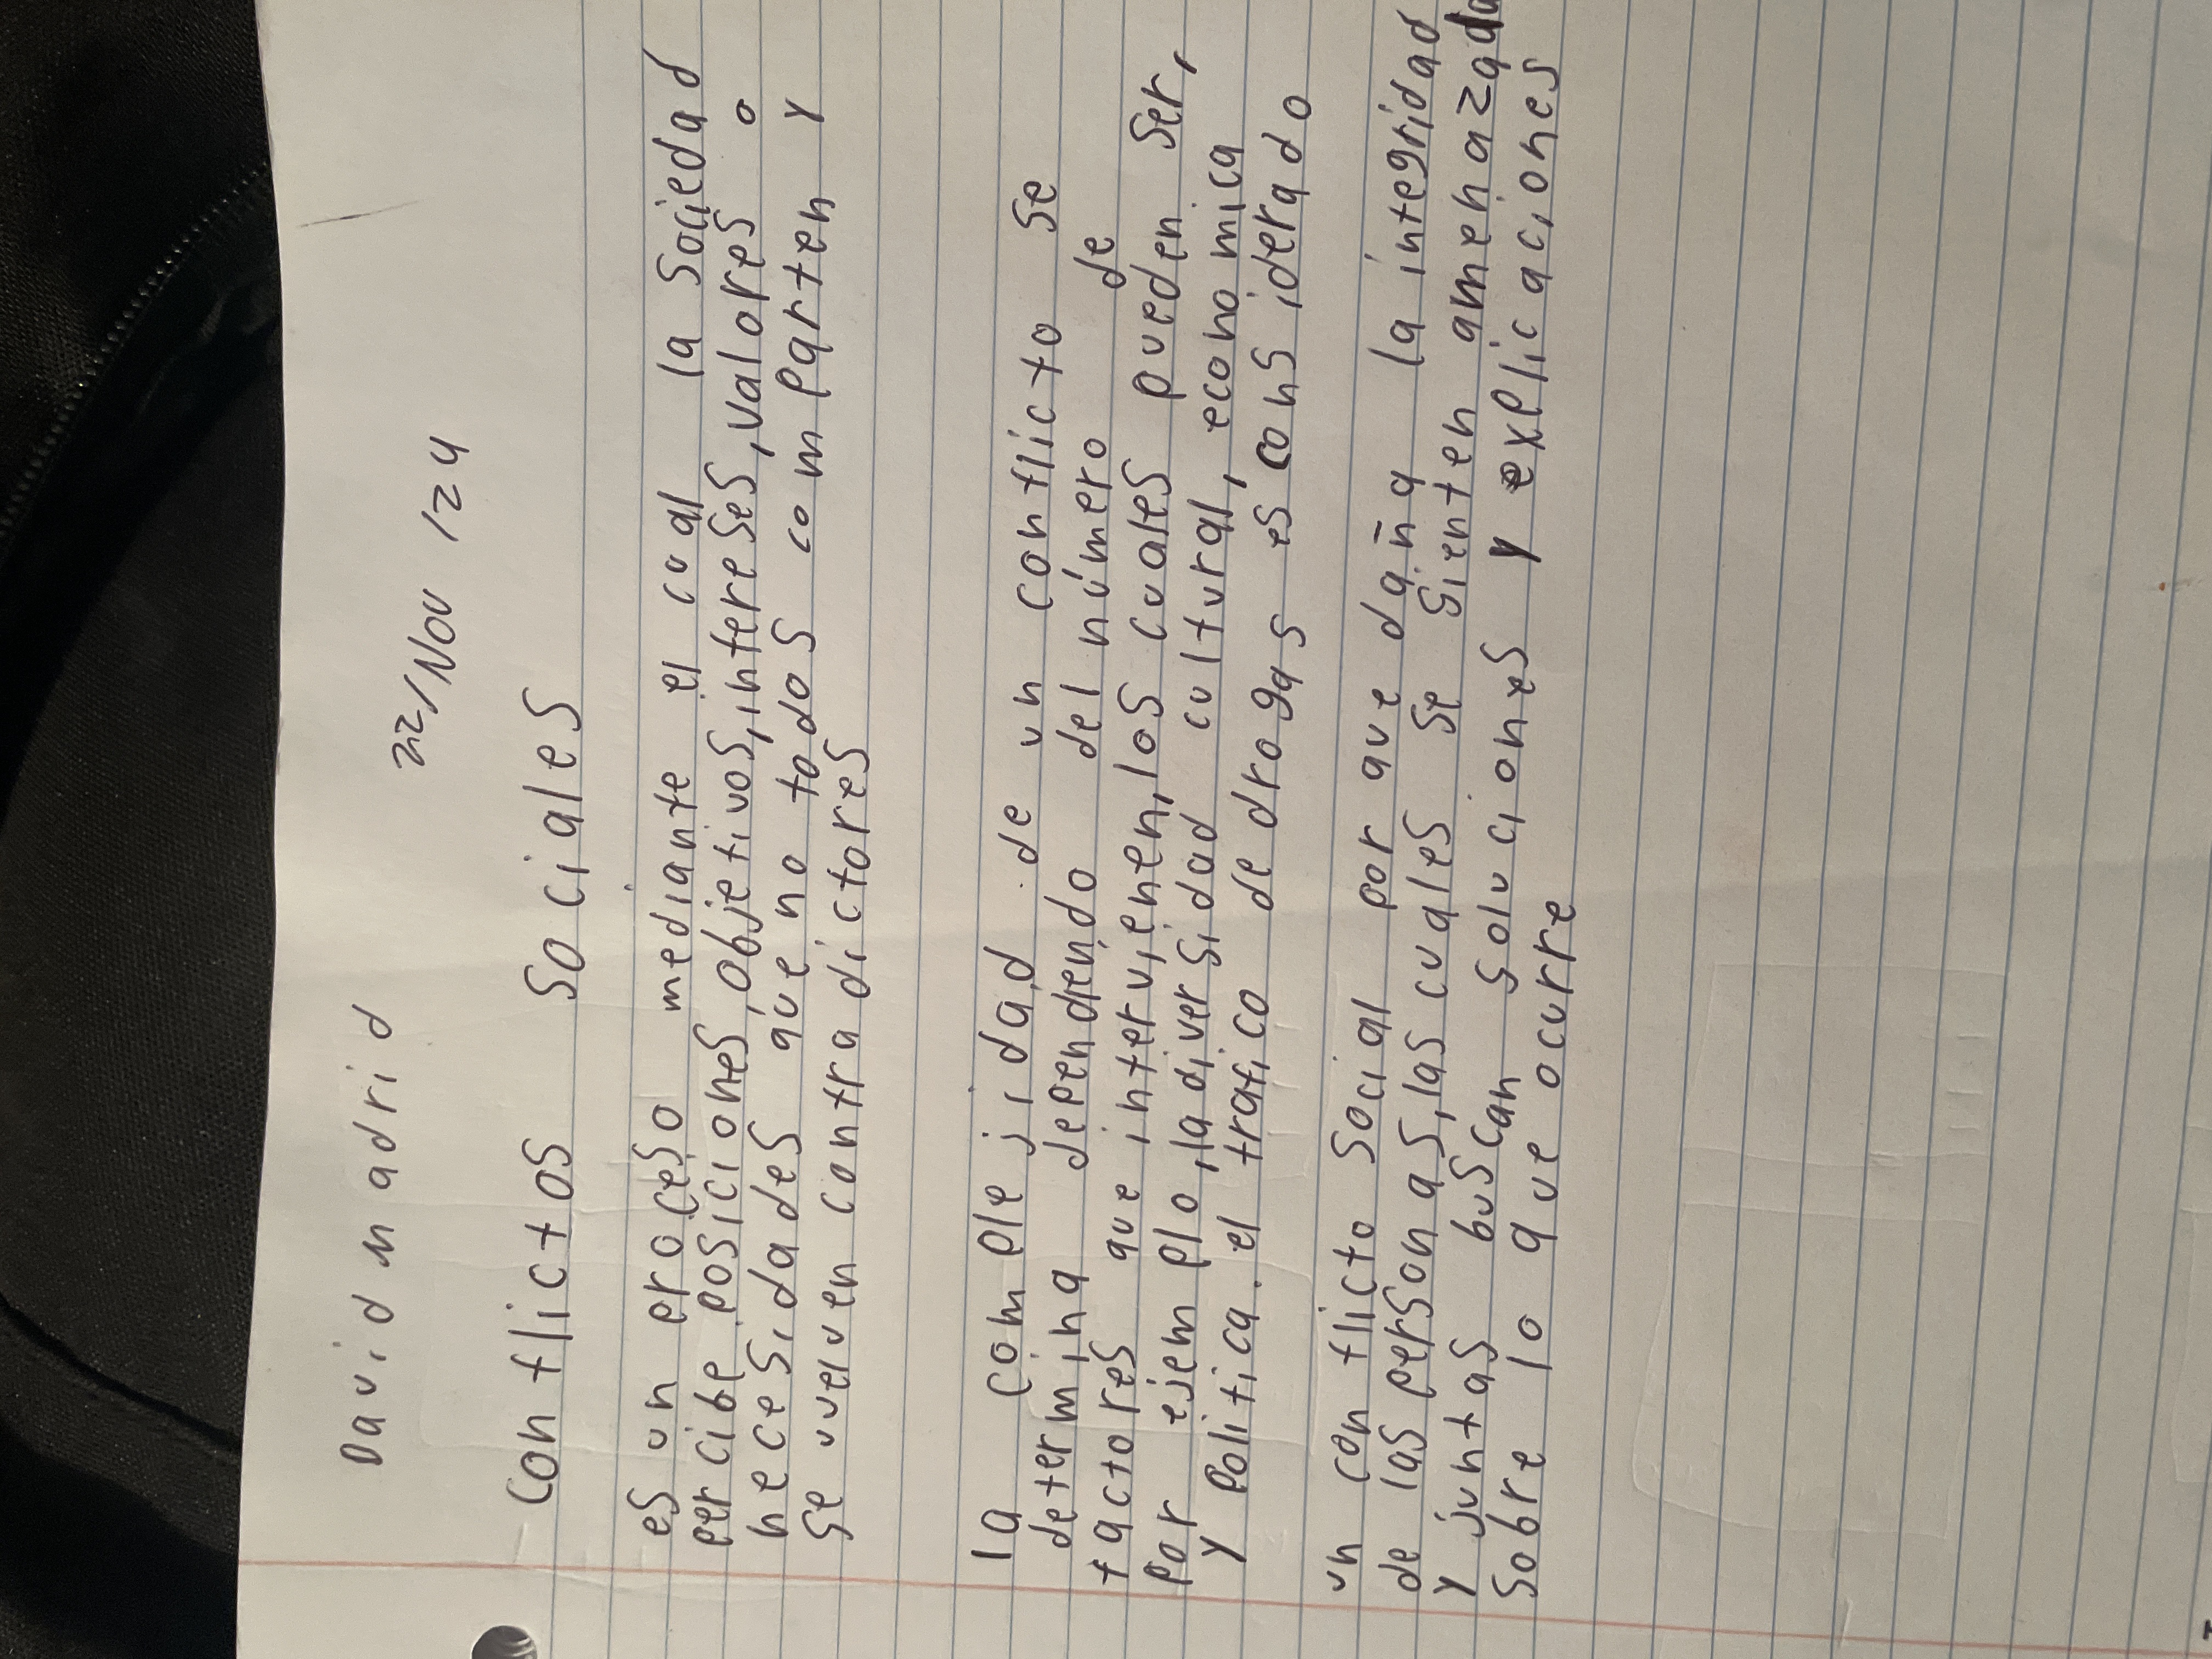 David madrid
22/Nov /24
Conflictos Sociales
es un proceso mediante el cual la Sociedad
percibe posiciones, objetivos, intereses, valores o
necesidades que no todos comparten y
se vuelven contradictores
la complejidad de un conflicto se
determina dependiendo del número de
factores que intervienen, los cuales pueden ser,
por ejemplo, la diversidad cultural, economica
y politica. el trafico de drogas es considerado
un conflicto Social por que daña la integridad
de las personas, las cuales se sienten amenazada
y juntas buscan soluciones y explicaciones
sobre lo que ocurre